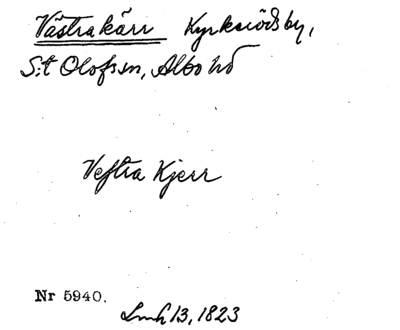 Västrakärr Kyrkmödsby,
S:t Olofs sn, Albo hd
Veſtra Kjerr
Nr 5940.
Lmh 13, 1823